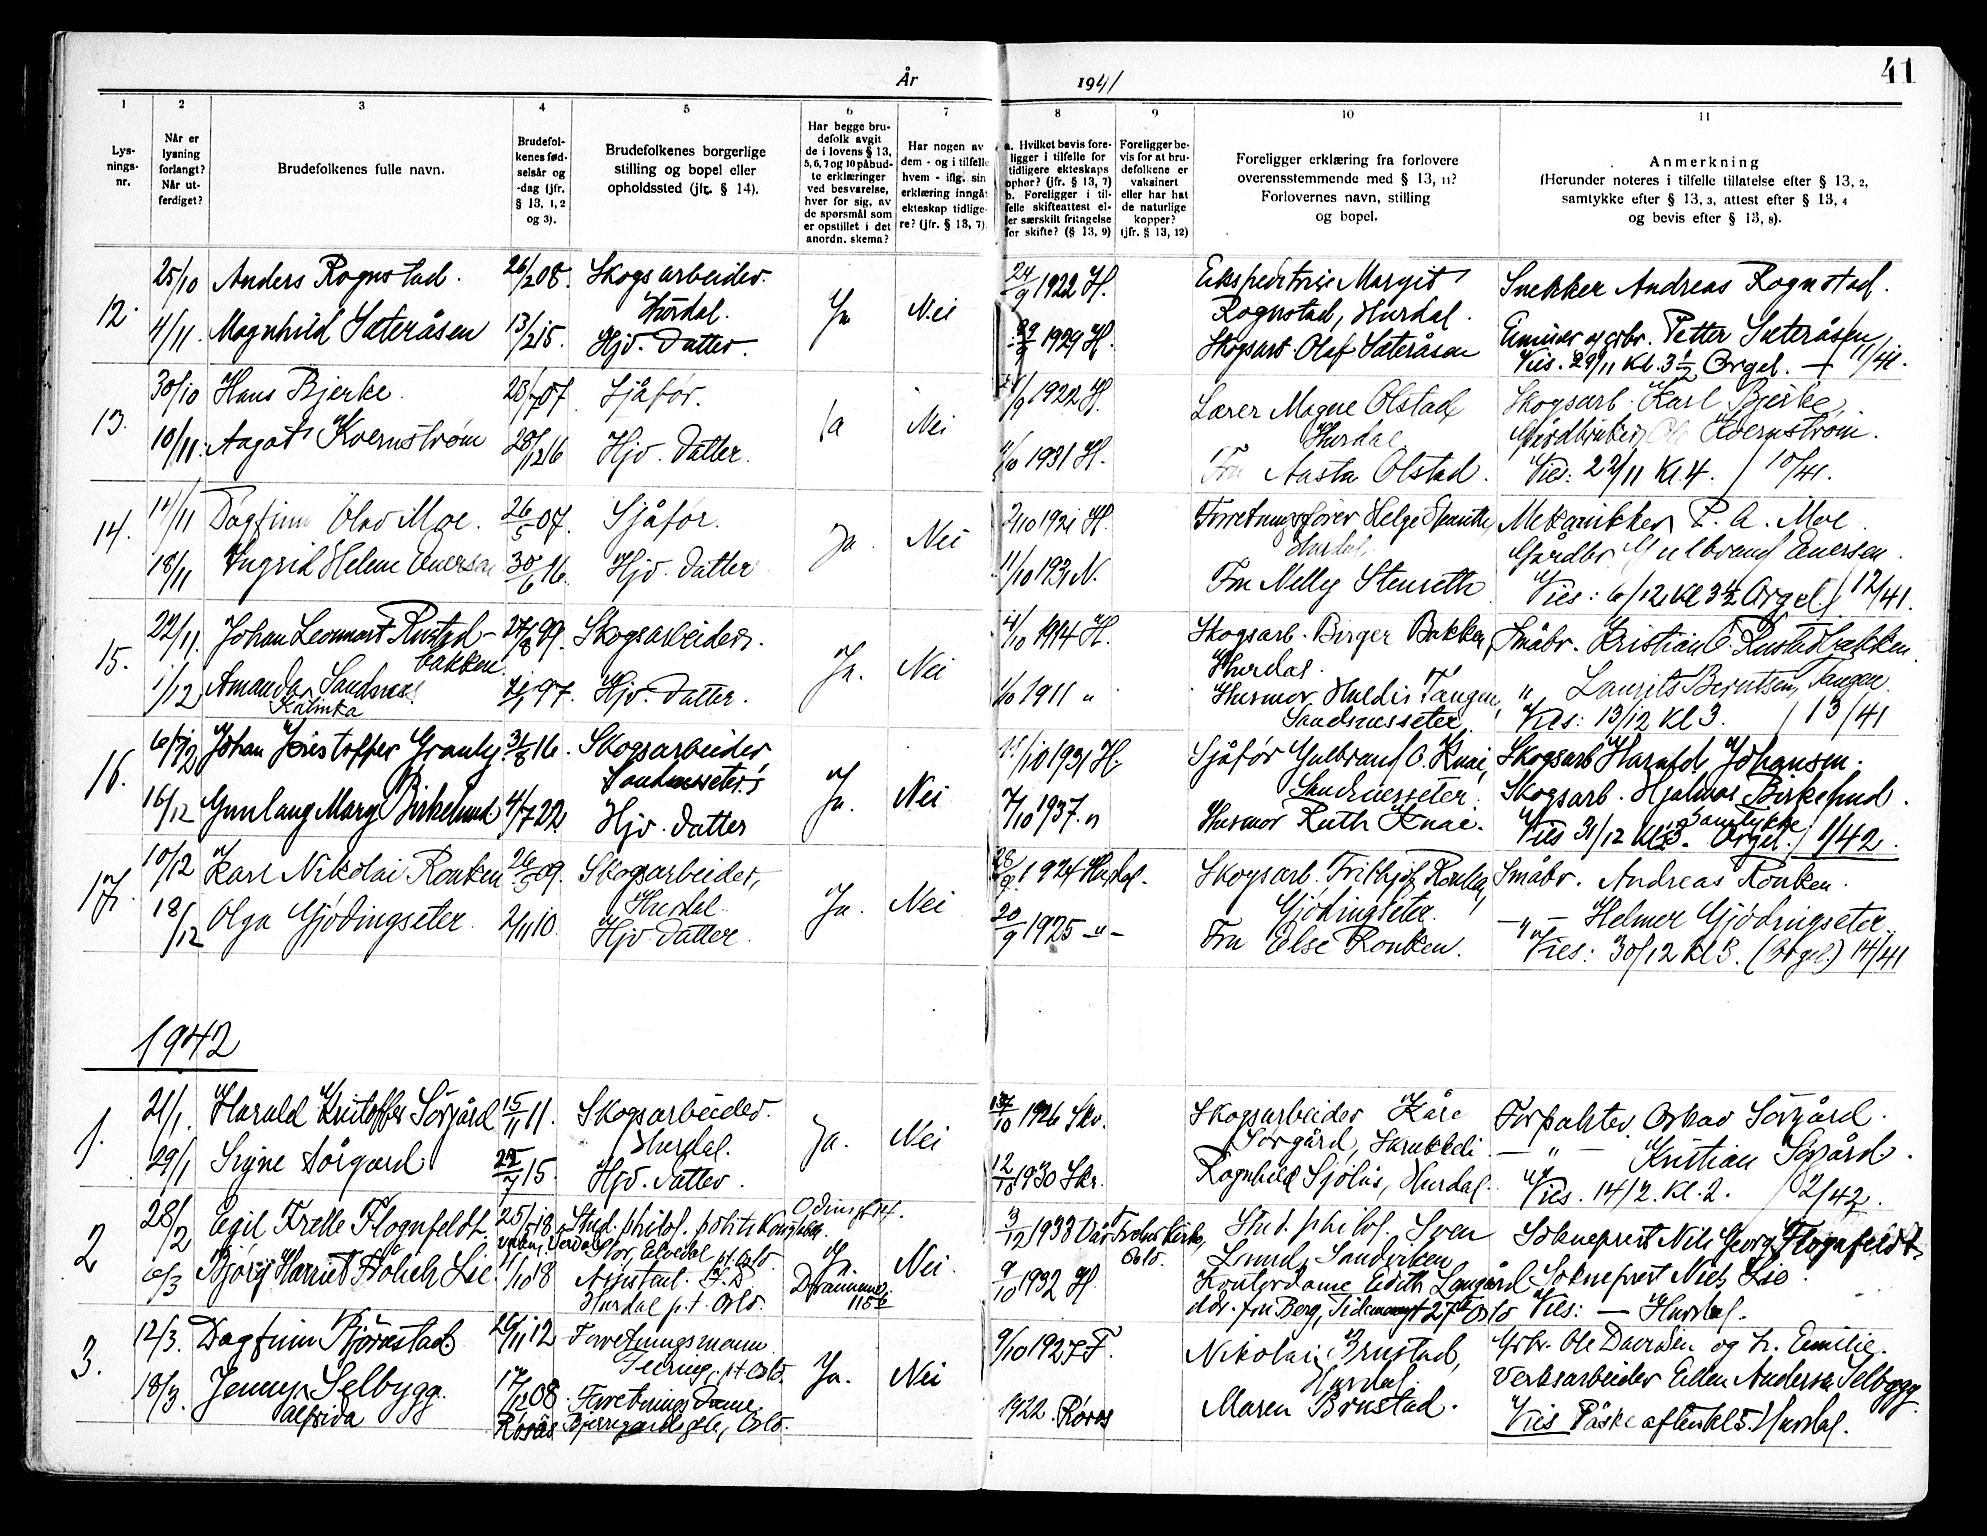 41
År 1941
1 2 3 4 5 6 7 8 9 10 11
Lys-
nings-
nr.
Når er
lysning
forlangt?
Når ut-
ferdiget?
Brudefolkenes fulle navn.
Brudefol-
kenes fød-
selsår og
-dag (jfr.
§ 13, 1, 2
og 3).
Brudefolkenes borgerlige
stilling og bopel eller
opholdssted (jfr. § 14).
Har begge bru-
defolk avgit
de i lovens § 13,
5, 6, 7 og 10 påbud-
te erklæringer
ved besvarelse,
hver for sig, av
de spørsmål som
er opstillet i det
anordn. skema?
Har nogen av
dem - og i tilfelle
hvem - iflg. sin
erklæring inngåt
ekteskap tidlige-
re? (jfr. § 13, 7).
a. Hvilket bevis fore-
ligger i tilfelle for
tidligere ekteskaps
ophør? (jfr. § 13, 7)
b. Foreligger i til-
felle skifteattest el-
ler særskilt fritagelse
for skifte? (§ 13, 9)
Foreligger be-
vis for at bru-
defolkene er
vaksinert
eller har hat
de naturlige
kopper?
(jfr. § 13, 12)
Foreligger erklæring fra forlovere
overensstemmende med § 13, 11?
Forlovernes navn, stilling
og bopel.
Anmerkning
(Herunder noteres i tilfelle tillatelse efter § 13, 2,
samtykke efter § 13, 3, attest efter § 13, 4
og bevis efter § 13, 8).
12. 25/10 Anders Rognstad. 26/2 08. Skogsarbeider. Hurdal. Ja Nei 24/9 1922 H. Margit Rognstad, Hurdal. Snekker Andreas Rognstad.
4/11 Magnhild Sæteråsen 13/2 15. Hjv. datter. 29/9 1929 H. Skogsarb Olaf Sæteråsen Petter Sæteråsen
Vies. 29/11 Kl. 3 1/2 Orgel. 11/41.
13. 30/10 Hans Bjerke 23/7 07. Sjåfør. Ja Nei 1922 H. Lærer Magne Olstad Hurdal Skogsarb. Karl Bjerke,
10/11. Aagot Kvernstrøm 28/12 16 Hjv. datter. 11/10 1931 H. Fru Aasta Olstad. Gårdbruker Ole Kvernstrøm.
Vies: 22/11 Kl. 4. / 10/41.
14. 14/11 Dagfinn Olav Moe. 26/5 07. Sjåfør. Ja. Nei 2/10 1921 H. Forretningsfører Helge Stenseth, Hurdal. Mekanikker P. A. Moe.
18/11 Ingrid Helene Enersen 30/6 16. Hjv. datter 11/10 1931 N. Fru Nelly Stenseth Gårdbr Gulbrand Enersen.
Vies: 6/12 Kl 3 1/2 Orgel / 12/41.
15. 22/11. Johan Leonnart Rustad- bakken 27/8 99. Skogsarbeider. Ja. Nei 4/10 1914 H. Skogsarb. Birger Bakken, Hurdal. Småbr. Kristian O. Rustadbakken.
1/12 Amanda Sandsnes Kalinka 97. Hjv. datter. 1/10 1911 " Husmor Huldis Tangen, Sandsnesseter. " Laurits Berntsen, Tangen.
Vies: 13/12 Kl 3. / 13/41
16. 6/12 Johan Kristoffer Granly 31/8 16. Skogsarbeider Sandsneseter's Ja. Nei 11/10 1931 H. Sjåfør Gulbrand O. Knai, Sandsnesseter. Skogsarb Harald Johansen.
16/12 Gunlaug Mary Birkelund 4/7 22 Hjv. datter 7/10 1937. " Husmor Ruth Knai. Skogsarb. Hjalmar Birkelund. Samtykke
Vies 31/12 Kl 3. Orgel. / 1/42.
17. 10/12 Karl Nikolai Ronken 26/5 09. Skogsarbeider, Hurdal. Ja. Nei 28/9 1924 Hurdal. Skogsarb. Fritjof Ronken, Gjødingseter. Småbr. Andreas Ronken.
18/12 Olga Gjødingseter. 2/11 10. Hjv datter. 20/9 1925 - " - Fru Else Ronken. - " - Helmer Gjødingseter.
Vies: 30/12 Kl 3. (Orgel.) 14/41
1942
1. 21/1. Harald Kristoffer Sörgård 15/11 11. Skogsarbeider. Hurdal. Ja. Nei 1926 Skr. Skogsarbeider Kåre Sørgård, Skrukkeli. Forpakter Oskar Sörgård.
29/1 Signe Sørgård 22/7 15. Hjv. datter. 12/10 1930 Skr. Ragnhild Sjølie, Hurdal. - " - Kristian Sörgård.
Vies. 14/2. Kl. 2. / 2/42.
2 28/2 Egil Trette Flognfeldt. 25/5 18. Stud. philol. Nei 3/12 1933 Vår Frelsers Kirke, Oslo. Stud. philol. Sven Lund, Sandviken Sokneprest Nils Georg Flognfeldt
6/3 Bjørg Harriet Frölich Lie. 4/10 18 Hurdal p.t. Oslo. Ja. Drammensv. 115 b 9/10 1932 H. Kontordame Edith Langård Sokneprest Niels Lie.
adr. fru Berg, Tidemansgt 27 Oslo Vies: — Hurdal.
3. 12/3. Dagfinn Björnstad 26/11 12 Forretningsmann Feiring, pt. Oslo. Ja. Nei 9/10 1927 F. Nikolai Brustad, Hurdal. Grbr. Ole Davidsen og h. Emilie.
18/3 Jenny Selbygg. Alfrida 17/12 08. Røros Forretningsdame, Bjerregaardsgt., Oslo. 1922 Røros Maren Brustad. Verksarbeider Edln Anderssen Selbygg.
Vies Påskeaften kl 5. Hurdal.